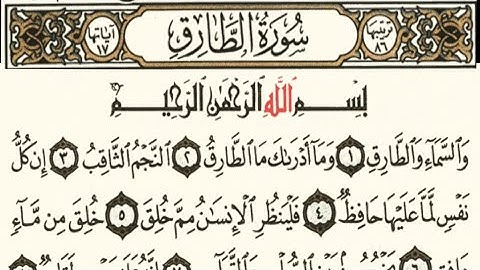 ترتيبها ٨٦ سُورَةُ الطَّارِقِ آياتها ١٧
بِسْمِ اللَّهِ الرَّحْمَٰنِ الرَّحِيمِ
وَالسَّمَاءِ وَالطَّارِقِ ١ وَمَا أَدْرَىٰكَ مَا الطَّارِقُ ٢ النَّجْمُ الثَّاقِبُ ٣ إِن كُلُّ
نَفْسٍ لَّمَّا عَلَيْهَا حَافِظٌ ٤ فَلْيَنظُرِ الْإِنسَانُ مِمَّ خُلِقَ ٥ خُلِقَ مِن مَّاءٍ